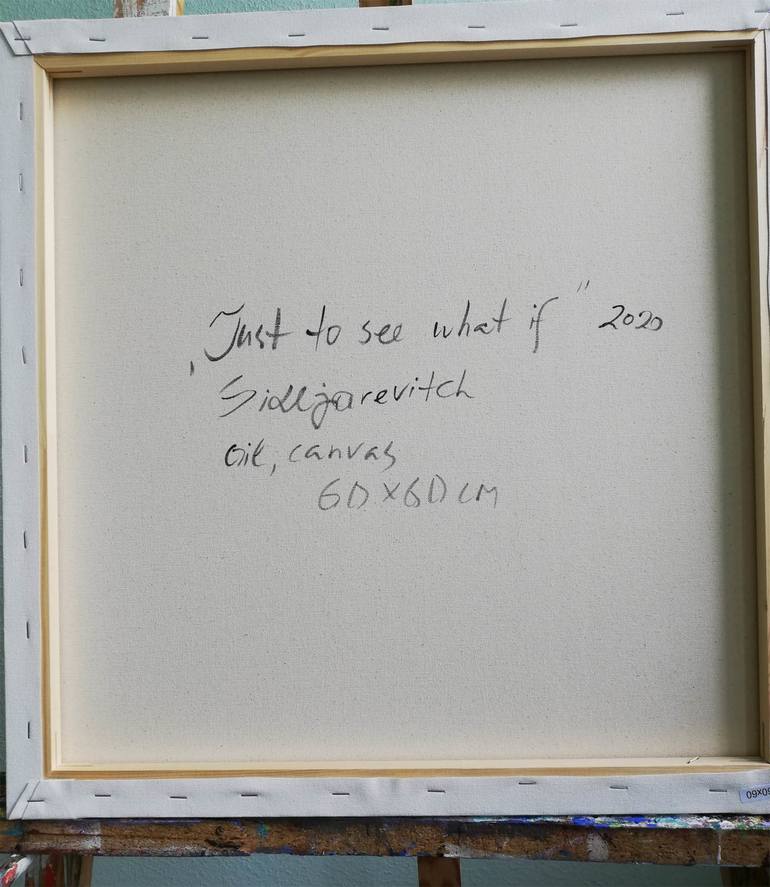 „Just to see what if" 2020
Sidljarevitch
oil, canvas
60x60 cm
60x60